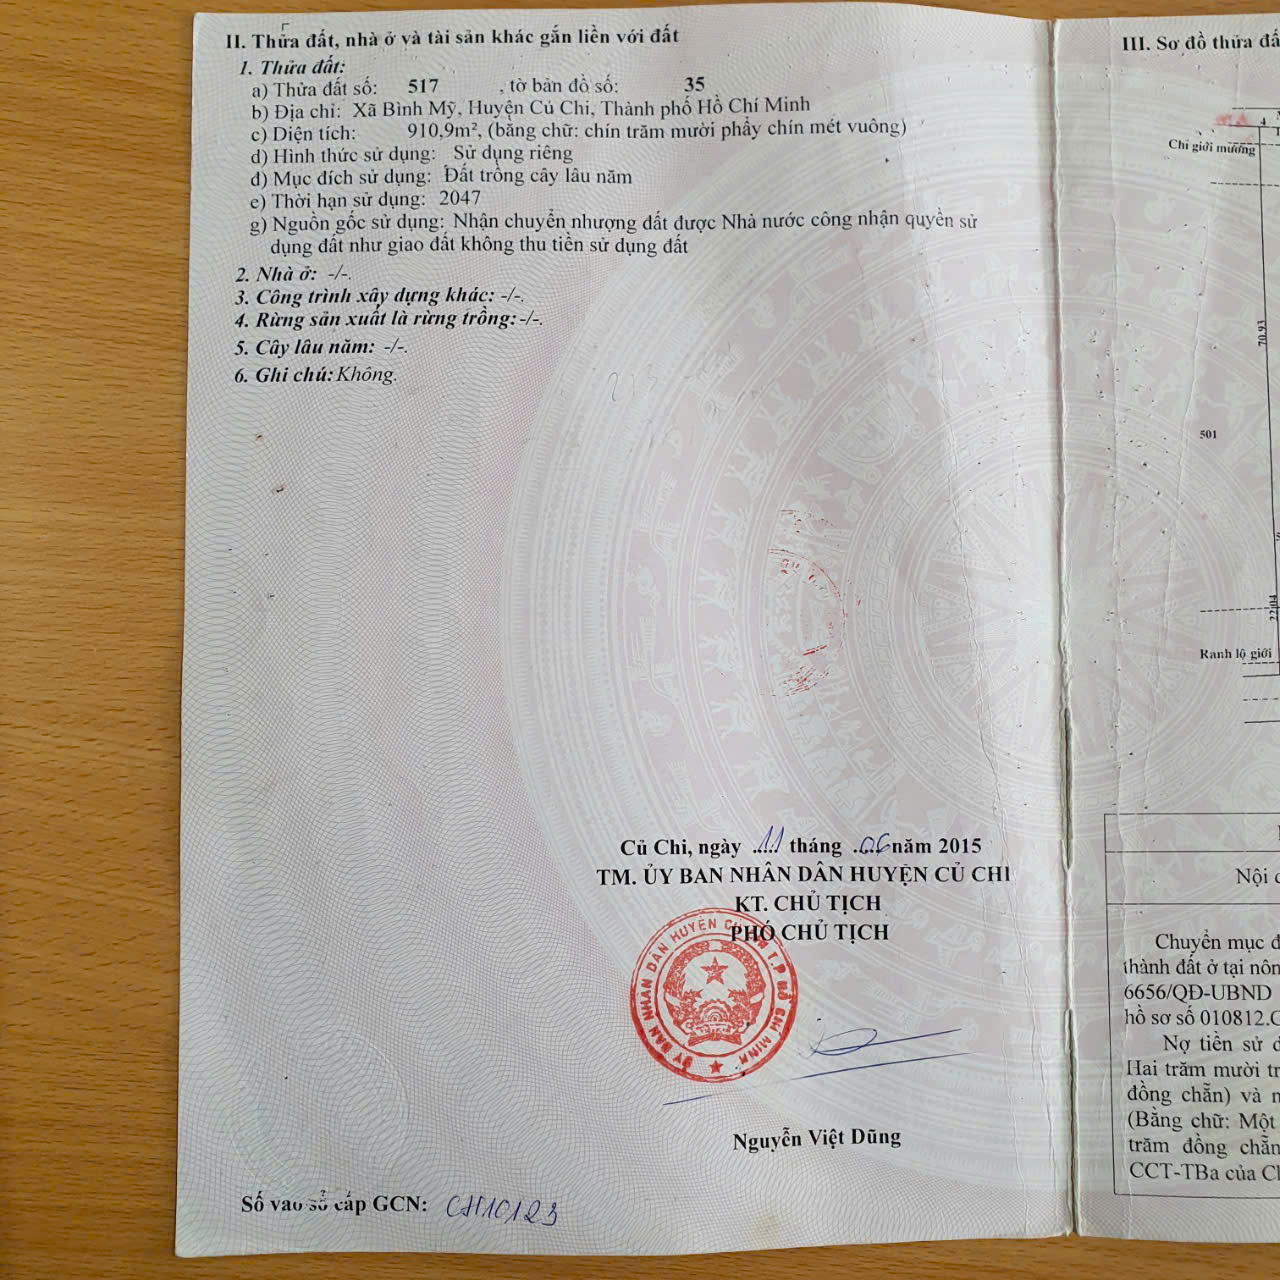 II. Thửa đất, nhà ở và tài sản khác gắn liền với đất
1. Thửa đất:
a) Thửa đất số: 517 , tờ bản đồ số: 35
b) Địa chỉ: Xã Bình Mỹ, Huyện Củ Chi, Thành phố Hồ Chí Minh
c) Diện tích: 910,9m², (bằng chữ: chín trăm mười phẩy chín mét vuông)
d) Hình thức sử dụng: Sử dụng riêng
đ) Mục đích sử dụng: Đất trồng cây lâu năm
e) Thời hạn sử dụng: 2047
g) Nguồn gốc sử dụng: Nhận chuyển nhượng đất được Nhà nước công nhận quyền sử
dụng đất như giao đất không thu tiền sử dụng đất
2. Nhà ở: -/-.
3. Công trình xây dựng khác: -/-.
4. Rừng sản xuất là rừng trồng: -/-.
5. Cây lâu năm: -/-.
6. Ghi chú: Không.
Củ Chi, ngày 11 tháng 06 năm 2015
TM. ỦY BAN NHÂN DÂN HUYỆN CỦ CHI
KT. CHỦ TỊCH
PHÓ CHỦ TỊCH
ỦY BAN NHÂN DÂN HUYỆN CỦ CHI T.P HỒ CHÍ MINH
Nguyễn Việt Dũng
Số vào sổ cấp GCN: CH10123
III. Sơ đồ thửa đấ
4
Chỉ giới mương
70.93
501
22.04
Ranh lộ giới
Nội
Chuyển mục đ
thành đất ở tại nôn
6656/QĐ-UBND
hồ sơ số 010812.C
Nợ tiền sử d
Hai trăm mười tr
đồng chẵn) và n
(Bằng chữ: Một
trăm đồng chẵn
CCT-TBa của Ch